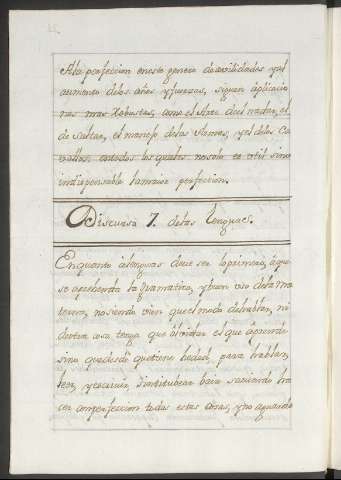 Ala perfeccion eneste genero de avilidades y al
aumento delos años y fuerzas, siguen aplicacio
nes mas Robustas, como el Arte del nadar, el
de saltar, el manejo delas Armas, y el delos Ca
vallos, entodos los quales nosolo es util sino
indispensable la maior perfeccion.
Discurso 7. delas lenguas.
Enquanto alenguas deve ser la primera, aque
se aprehenda la Gramatica, y buen uso dela Ma
terna, nosiendo vien que el modo de hablar, ni
de otra cosa tenga que olvidar el que aprende
sino que desde que tiene hedad, para hablar,
leer, y escrivir, sintitubear baia saviendo ha
cer con perfeccion todas estas cosas, y no aguarde